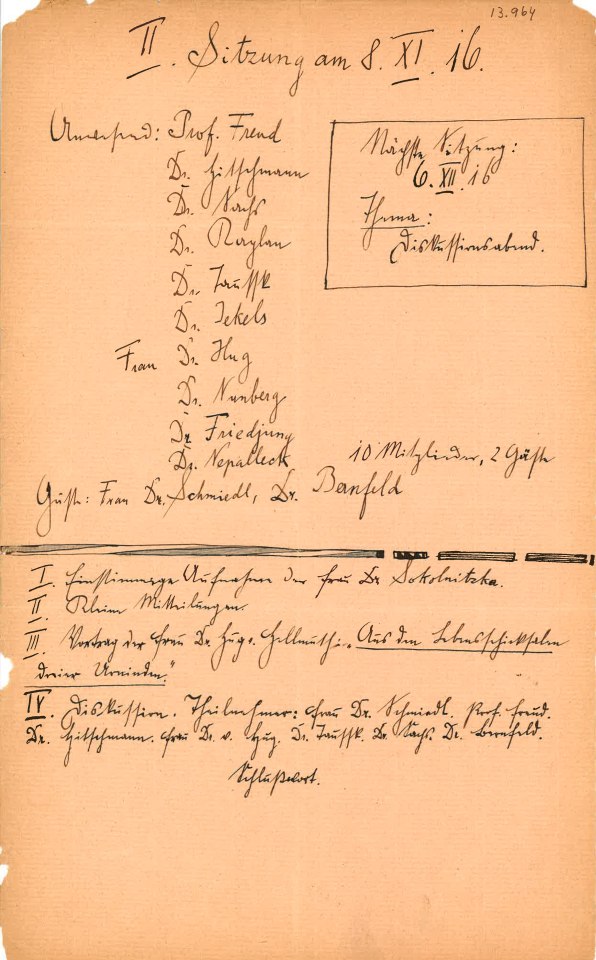 13.964
II. Sitzung am 8. XI. 16.
Anwesend: Prof. Freud
Dr. Hitschmann
Dr. Sachs
Dr.
Dr. Tausk
Dr. Jekels
Frau Dr. Hug
Dr. Nunberg
Dr. Friedjung
Dr. Nepalleck
10 Mitglieder, 2 Gäste
Gäste: Frau Dr. Schmiedl, Dr. Bernfeld
Nächste Sitzung:
6. XII. 16
Thema:
Diskussionsabend.
I. Einstimmige Aufnahme der Frau Dr Sokolnitzka.
II. Kleine Mitteilungen.
III. Vortrag der Frau Dr. Hug v. Hellmuth: „Aus den Lebensschicksalen
dreier Urninden."
IV. Diskussion. Teilnehmer: Frau Dr. Schmiedl. Prof. Freud.
Dr. Hitschmann. Frau Dr. v. Hug. Dr. Tausk. Dr. Sachs. Dr. Bernfeld.
Schlußwort.